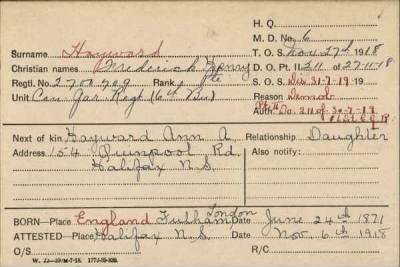 H. Q.
M. D. No. 6
Surname Hayward T. O. S. Nov. 27th 1918
Christian names Frederick Henry D. O. Pt. II 211 of 27-11-18
Regtl. No. 2700909 Rank Pte S. O. S. Dis 31-7-19 19
Unit Can Gar Regt (6th Bn) Reason Demob
Auth. Pt II Do. 211 of 30-7-19
Next of kin Hayward Ann A Relationship Daughter
Address 154 Quinpool Rd. Also notify:
Halifax N.S.
BORN—Place England Fulham London Date June 24th 1871
ATTESTED—Place Halifax N.S. Date Nov. 6th 1918
O/S R/C